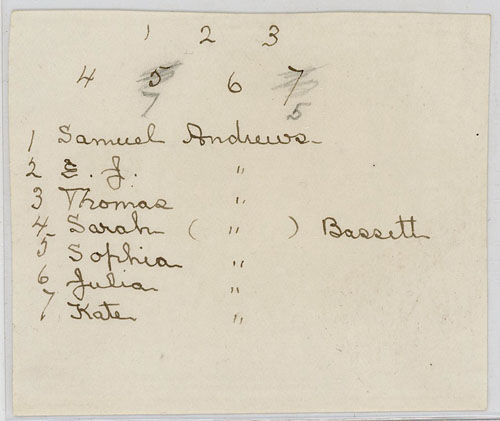 1 2 3
4 5 6 7
7 5
1 Samuel Andrews
2 E. J. "
3 Thomas "
4 Sarah ( " ) Bassett
5 Sophia "
6 Julia "
7 Kate "